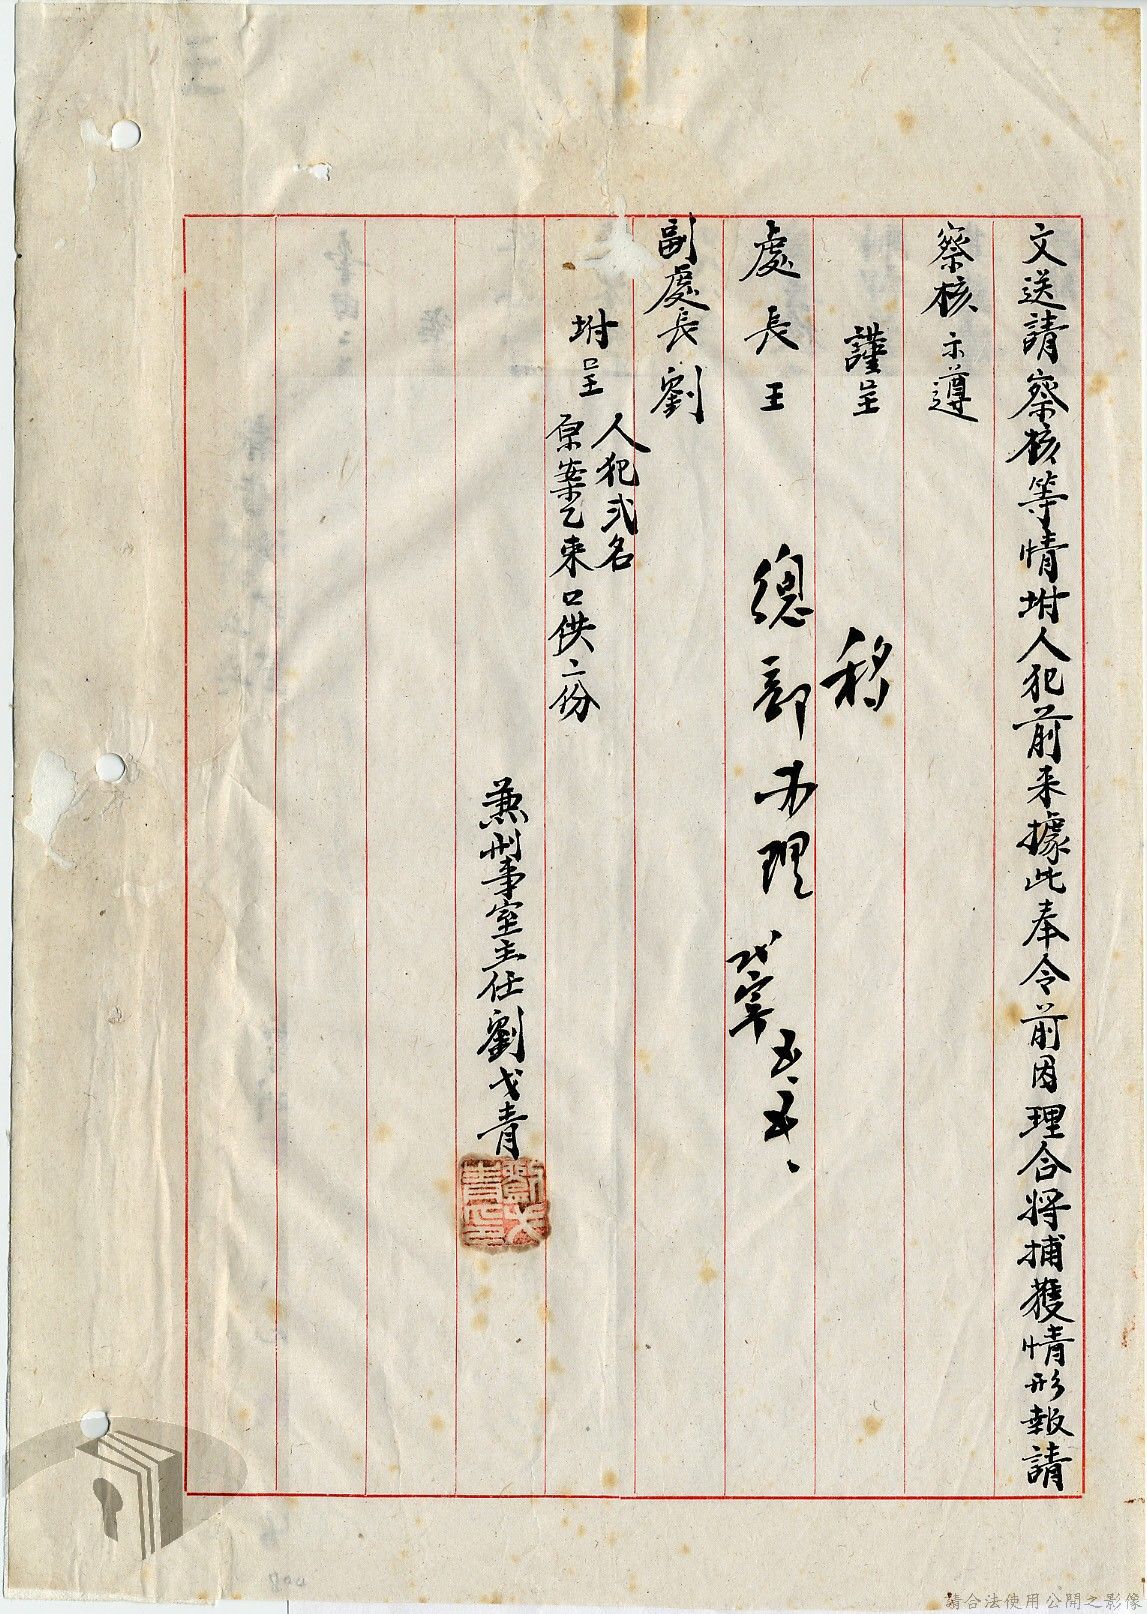 文送請察核等情坿人犯前來據此奉令前因理合將捕獲情形報請
察核示遵
謹呈
處長王
副處長劉
移
總部办理
五.五.
坿呈
人犯弍名
原案乙束口供二份
兼刑事室主任劉戈青
劉戈青印
請合法使用公開之影像